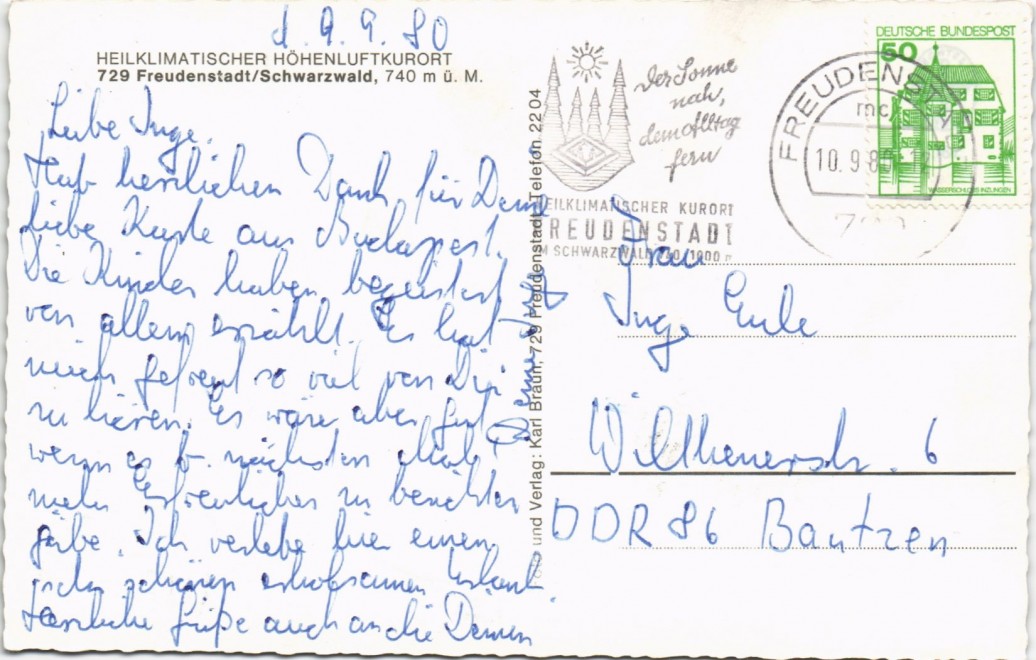 d. 9.9.80
HEILKLIMATISCHER HÖHENLUFTKURORT
729 Freudenstadt/Schwarzwald, 740 m ü. M.
Liebe Inge,
Hab herzlichen Dank für Deine
liebe Karte aus Budapest.
Die Kinder haben begeistert
von allem erzählt. Es hat
mich gefreut so viel von Dir
zu hören. Es wäre aber gut
wenn es b. nächsten Mal
mehr Erfreuliches zu berichten
gäbe. Ich verlebe hier einen
schönen erholsamen Urlaub.
Herzliche Grüße auch an die Deinen
Deine
und Verlag: Karl Braun, 729 Freudenstadt, Telefon 22 04
Der Sonne
nah,
dem Alltag
fern
HEILKLIMATISCHER KURORT
FREUDENSTADT
IM SCHWARZWALD 740/1000 m
FREUDENSTADT
mc
10.9.80
DEUTSCHE BUNDESPOST
50
WASSERSCHLOSS INZLINGEN
Frau
Inge Eule
Wilthenerstr. 6
DDR 86 Bautzen